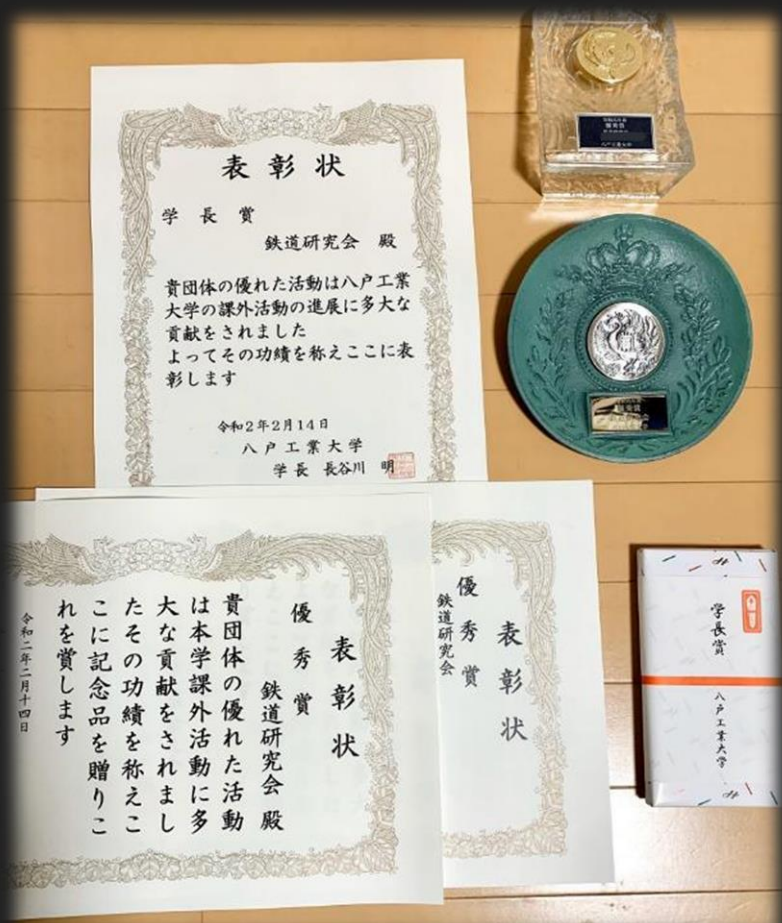 表彰状
学長賞
鉄道研究会 殿
貴団体の優れた活動は八戸工業
大学の課外活動の進展に多大な
貢献をされました
よってその功績を称えここに表
彰します
令和2年2月14日
八戸工業大学
学長 長谷川 明
優秀賞
八戸工業大学
表彰状
優秀賞
鉄道研究会 殿
貴団体の優れた活動
は本学課外活動に多
大な貢献をされまし
たその功績を称えこ
こに記念品を贈りこ
れを賞します
令和二年二月十四日
表彰状
優秀賞
鉄道研究会
学長賞
八戸工業大学